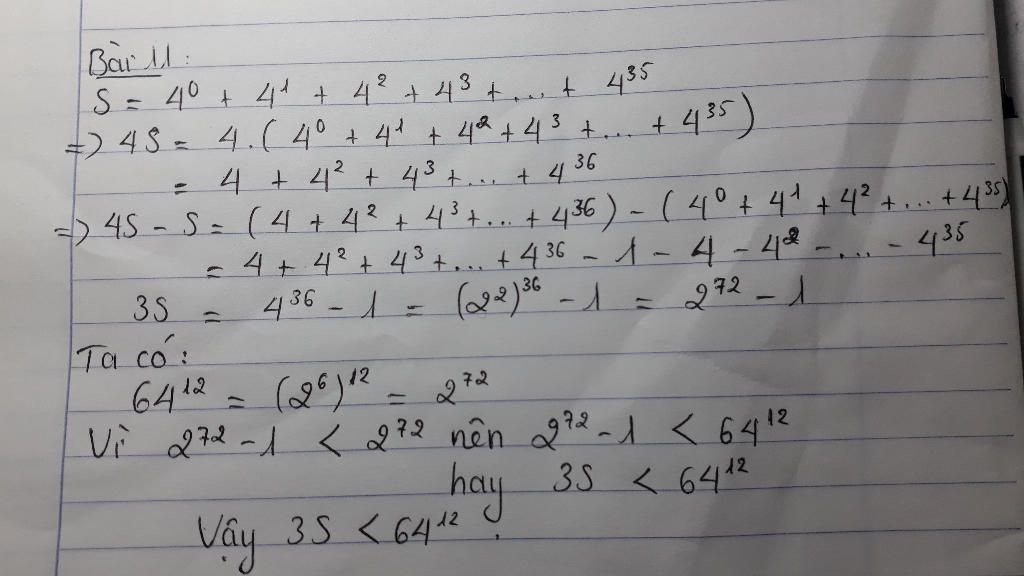 Bài 11:
S = 4⁰ + 4¹ + 4² + 4³ + ... + 4³⁵
=) 4S = 4.(4⁰ + 4¹ + 4² + 4³ + ... + 4³⁵)
= 4 + 4² + 4³ + ... + 4³⁶
=) 4S - S = (4 + 4² + 4³ + ... + 4³⁶) - (4⁰ + 4¹ + 4² + ... + 4³⁵)
= 4 + 4² + 4³ + ... + 4³⁶ - 1 - 4 - 4² - ... - 4³⁵
3S = 4³⁶ - 1 = (2²)³⁶ - 1 = 2⁷² - 1
Ta có:
64¹² = (2⁶)¹² = 2⁷²
Vì 2⁷² - 1 < 2⁷² nên 2⁷² - 1 < 64¹²
hay 3S < 64¹²
Vậy 3S < 64¹².